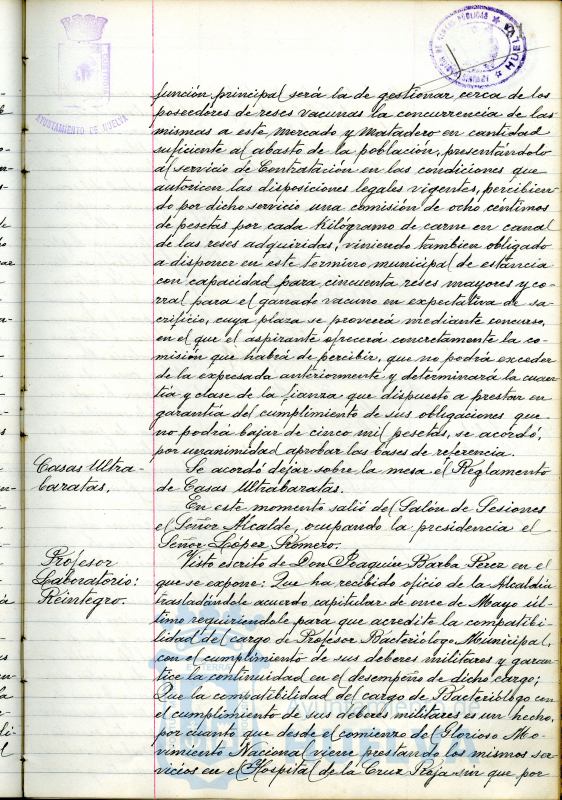 AYUNTAMIENTO DE HUELVA
función principal será la de gestionar cerca de los
poseedores de reses vacunas la concurrencia de las
mismas a este Mercado y Matadero en cantidad
suficiente al abasto de la población, presentándolo
al servicio de Contratación en las condiciones que
autoricen las disposiciones legales vigentes, percibien-
do por dicho servicio una comisión de ocho céntimos
de pesetas por cada Kilógramo de carne en canal
de las reses adquiridas, viniendo tambien obligado
a disponer en este termino municipal de estancia
con capacidad para cincuenta reses mayores y co-
rral para el ganado vacuno en expectativa de sa-
crificio, cuya plaza se proveerá mediante concurso,
en el que el aspirante ofrecerá concretamente la co-
misión que habrá de percibir, que no podrá exceder
de la expresada anteriormente y determinará la cuan-
tía y clase de la fianza que dispuesto a prestar en
garantía del cumplimiento de sus obligaciones que
no podrá bajar de cinco mil pesetas, se acordó,
por unanimidad aprobar las bases de referencia.
Casas Ultra-
baratas.
Se acordó dejar sobre la mesa el Reglamento
de Casas Ultrabaratas.
En este momento salió del Salón de Sesiones
el Señor Alcalde, ocupando la presidencia el
Señor López Romero.
Profesor
Laboratorio:
Reintegro.
Visto escrito de Don Joaquín Barba Perez en el
que se expone: Que ha recibido oficio de la Alcaldía
trasladándole acuerdo capitular de once de Mayo úl-
timo requiriendole para que acredite la compatibi-
lidad del cargo de Profesor Bacteriólogo Municipal,
con el cumplimiento de sus deberes militares y garan-
tice la continuidad en el desempeño de dicho cargo;
Que la compatibilidad del cargo de Bacteriólogo con
el cumplimiento de sus deberes militares es un hecho,
por cuanto que desde el comienzo del Glorioso Mo-
vimiento Nacional viene prestando los mismos ser-
vicios en el Hospital de la Cruz Roja sin que por